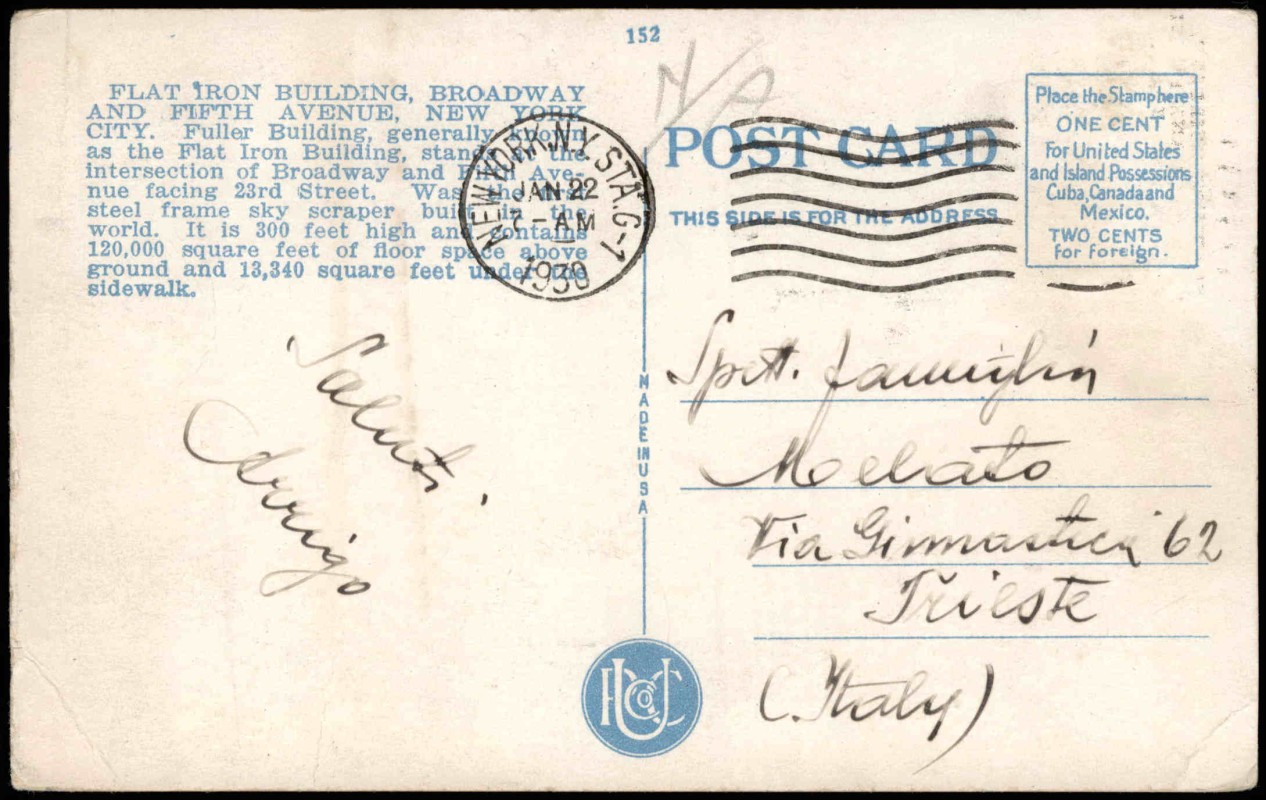 152
N/A
FLAT IRON BUILDING, BROADWAY
AND FIFTH AVENUE, NEW YORK
CITY. Fuller Building, generally known
as the Flat Iron Building, stands at the
intersection of Broadway and Fifth Ave-
nue facing 23rd Street. Was the first
steel frame sky scraper built in the
world. It is 300 feet high and contains
120,000 square feet of floor space above
ground and 13,340 square feet under the
sidewalk.
NEW YORK, N.Y. STA. G-1
JAN 22
7-AM
1930
POST CARD
THIS SIDE IS FOR THE ADDRESS
Place the Stamp here
ONE CENT
For United States
and Island Possessions
Cuba, Canada and
Mexico.
TWO CENTS
for foreign.
Saluti
Arrigo
MADE IN USA
Spett. famiglia
Via Ginnastica 62
Trieste
(Italy)